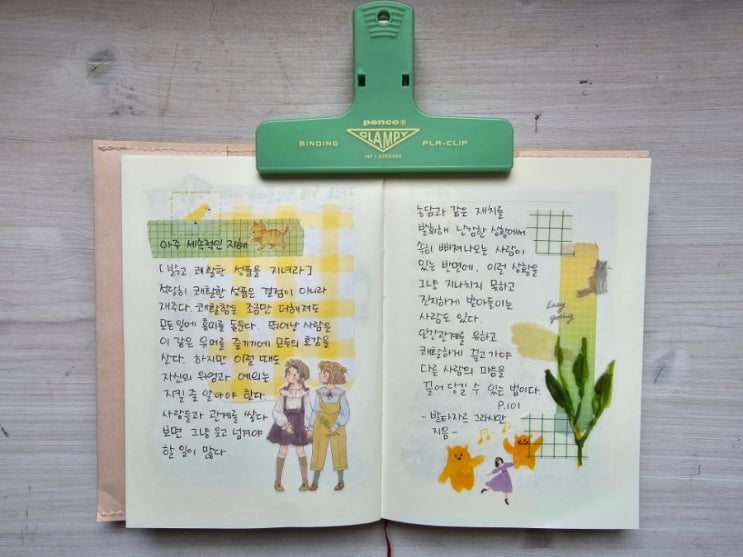 penco®
CLAMPY
BINDING
PLA-CLIP
아주 세속적인 지혜
[밝고 쾌활한 성품을 지녀라]
적당히 쾌활한 성품은 결점이 아니라
재주다. 쾌활함은 조금만 더해져도
모든 일에 흥미를 돋운다. 뛰어난 사람은
이 같은 유머를 즐기며 모두의 호감을
산다. 하지만 이럴 때도
자신의 위엄과 예의는
지킬 줄 알아야 한다.
사람들과 관계를 쌓다
보면 그냥 웃고 넘겨야
할 일이 많다.
농담과 같은 재치를
발휘해 난감한 상황에서
속히 빠져나오는 사람이
있는 반면에, 이런 상황을
그냥 지나치지 못하고
진지하게 받아들이는
사람도 있다.
인간관계를 유하고
쾌활하게 끌고가야
다른 사람의 마음을
끌어 당길 수 있는 법이다.
P.101
- 발타자르 그라시안
지음 -
Easy
going